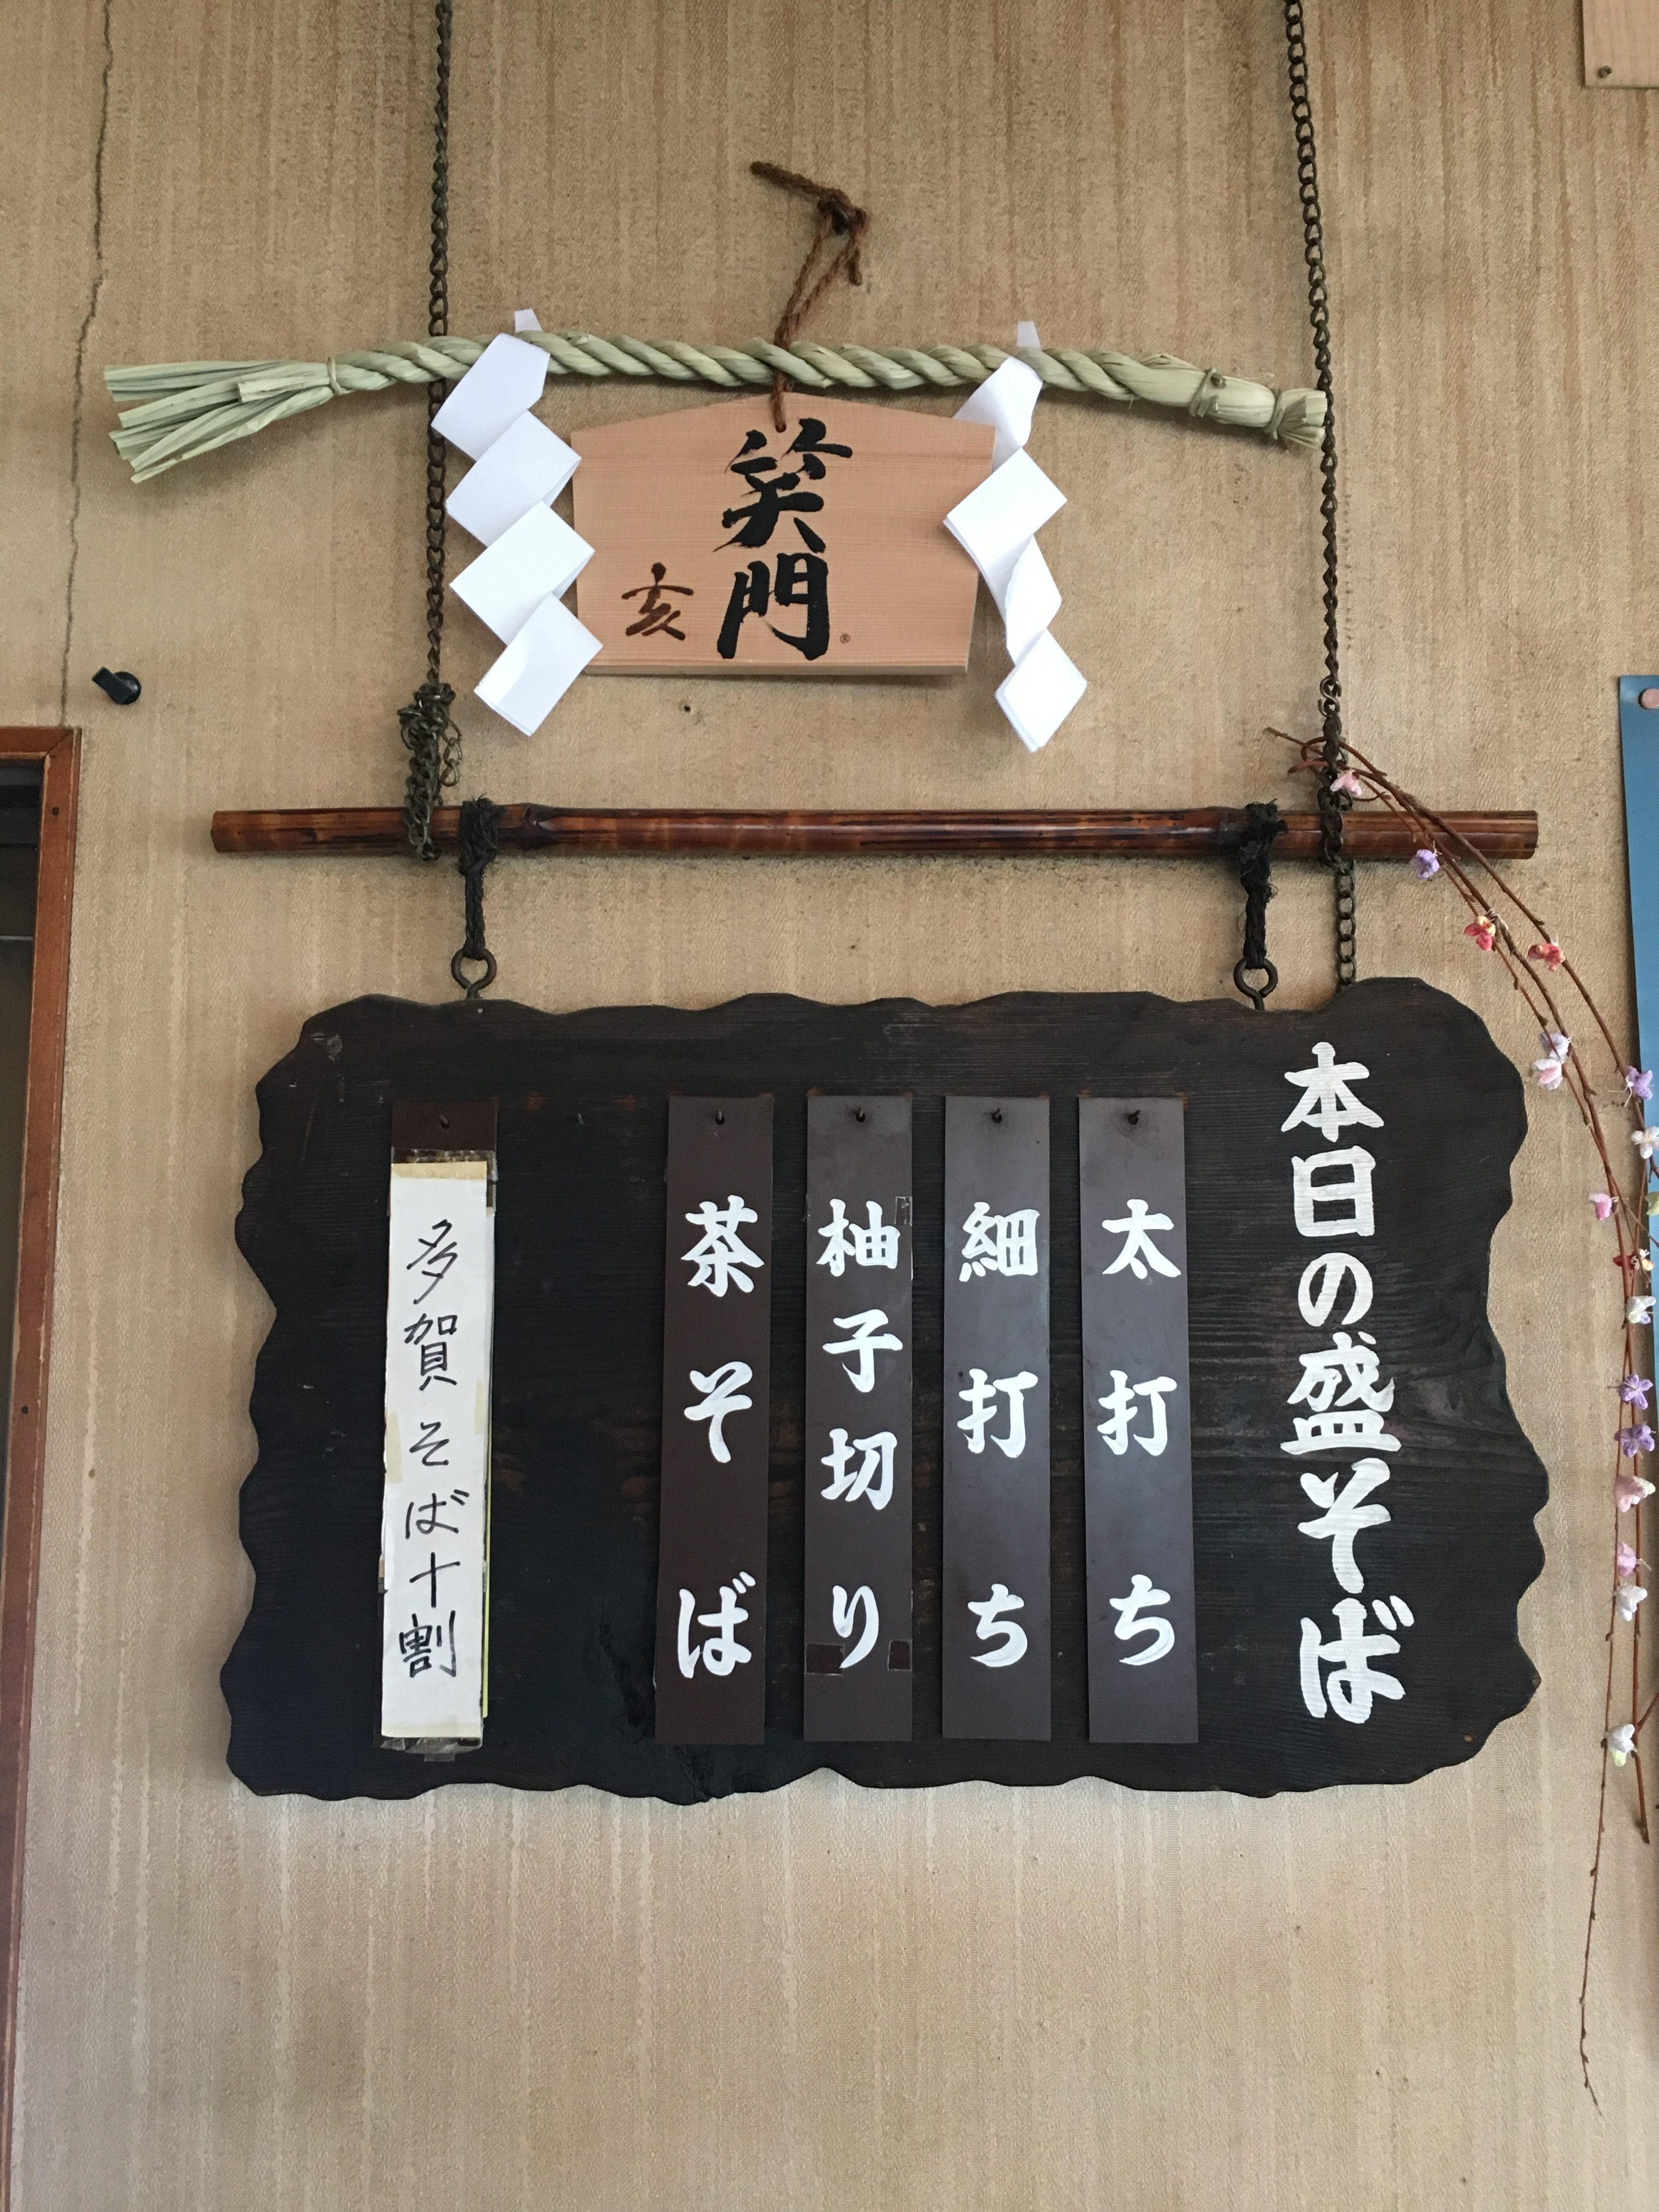 笑門
亥
本日の盛そば
太打ち
細打ち
柚子切り
茶そば
多賀そば十割